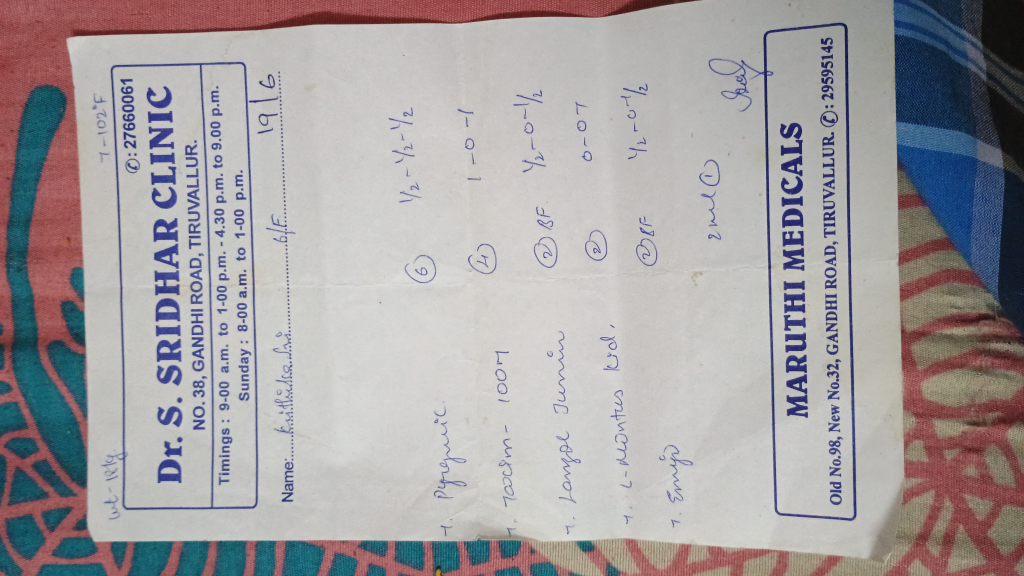 Wt - 18kg T - 102°F
✆: 27660061
Dr. S. SRIDHAR CLINIC
NO. 38, GANDHI ROAD, TIRUVALLUR.
Timings : 9-00 a.m. to 1-00 p.m. - 4.30 p.m. to 9.00 p.m.
Sunday : 8-00 a.m. to 1-00 p.m.
Name: 6/F 19/6
T. 6 1/2-1/2-1/2
T. - 100M 4 1-0-1
T. Lanzol Junior 2 BF 1/2-0-1/2
T. L-Montus Kid. 2 0-01
T. 2 BF 1/2-0-1/2
2ml 1
MARUTHI MEDICALS
Old No.98, New No.32, GANDHI ROAD, TIRUVALLUR. ✆: 29595145